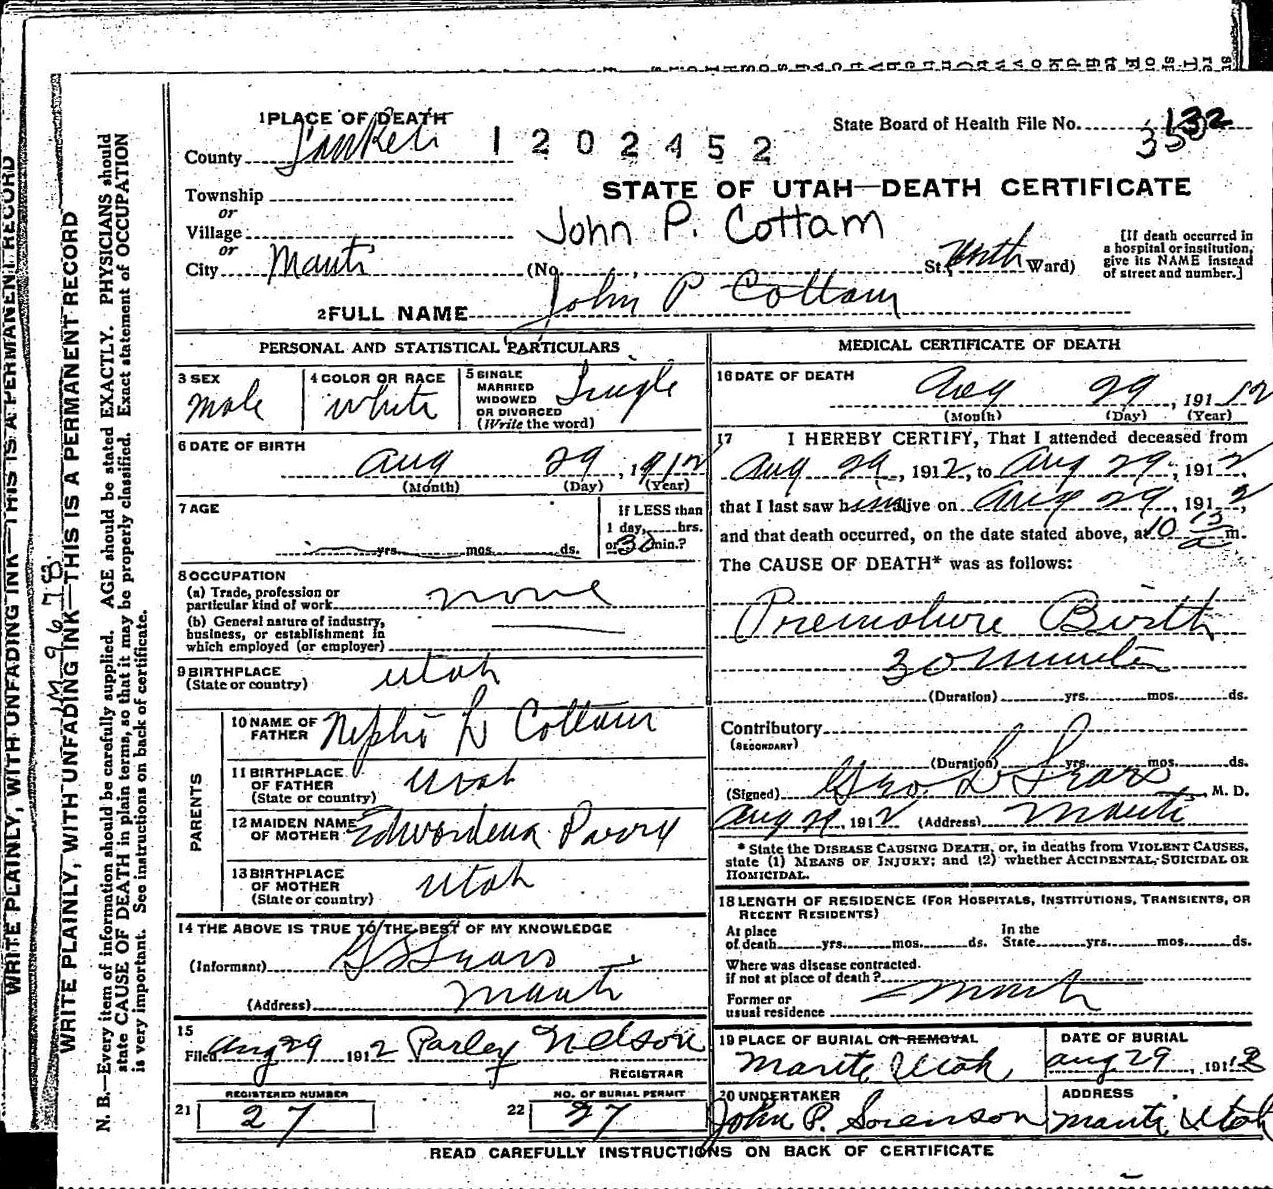 1 PLACE OF DEATH
State Board of Health File No. 132
County Sanpete
1202452
Township
STATE OF UTAH—DEATH CERTIFICATE
or
Village
John P. Cottam
or
City Manti (No. , St. North Ward)
[If death occurred in a hospital or institution, give its NAME instead of street and number.]
2 FULL NAME John P Cottam
PERSONAL AND STATISTICAL PARTICULARS
3 SEX Male
4 COLOR OR RACE White
5 SINGLE MARRIED WIDOWED OR DIVORCED (Write the word) Single
6 DATE OF BIRTH Aug 29, 1912
(Month) (Day) (Year)
7 AGE
yrs. mos. ds.
If LESS than 1 day, hrs. or 30 min.?
8 OCCUPATION
(a) Trade, profession or particular kind of work none
(b) General nature of industry, business, or establishment in which employed (or employer)
9 BIRTHPLACE (State or country) Utah
PARENTS
10 NAME OF FATHER Nephi L Cottam
11 BIRTHPLACE OF FATHER (State or country) Utah
12 MAIDEN NAME OF MOTHER Edwardena Parry
13 BIRTHPLACE OF MOTHER (State or country) Utah
14 THE ABOVE IS TRUE TO THE BEST OF MY KNOWLEDGE
(Informant) Sears
(Address) Manti
15
Filed Aug 29 1912 Parley Nelson
REGISTRAR
REGISTERED NUMBER
21 27
NO. OF BURIAL PERMIT
22 27
MEDICAL CERTIFICATE OF DEATH
16 DATE OF DEATH Aug 29, 1912
(Month) (Day) (Year)
17 I HEREBY CERTIFY, That I attended deceased from
Aug 29, 1912, to Aug 29, 1912,
that I last saw him alive on Aug 29, 1912,
and that death occurred, on the date stated above, at 10 15 a m.
The CAUSE OF DEATH* was as follows:
Premature Birth
30 Minutes
(Duration) yrs. mos. ds.
Contributory
(SECONDARY)
(Duration) yrs. mos. ds.
(Signed) Geo L Sears, M. D.
Aug 29, 1912 (Address) Manti
* State the DISEASE CAUSING DEATH, or, in deaths from VIOLENT CAUSES,
state (1) MEANS OF INJURY; and (2) whether ACCIDENTAL, SUICIDAL OR
HOMICIDAL.
18 LENGTH OF RESIDENCE (FOR HOSPITALS, INSTITUTIONS, TRANSIENTS, OR
RECENT RESIDENTS)
At place of death yrs. mos. ds. In the State yrs. mos. ds.
Where was disease contracted.
if not at place of death?
Former or usual residence Manti
19 PLACE OF BURIAL OR REMOVAL Manti, Utah
DATE OF BURIAL Aug 29, 1912
20 UNDERTAKER John P. Sorenson
ADDRESS Manti Utah
READ CAREFULLY INSTRUCTIONS ON BACK OF CERTIFICATE
WRITE PLAINLY, WITH UNFADING INK—THIS IS A PERMANENT RECORD
WRITE PLAINLY, WITH UNFADING INK—THIS IS A PERMANENT RECORD
N. B.—Every item of information should be carefully supplied. AGE should be stated EXACTLY. PHYSICIANS should
state CAUSE OF DEATH in plain terms, so that it may be properly classified. Exact statement of OCCUPATION
is very important. See instructions on back of certificate.